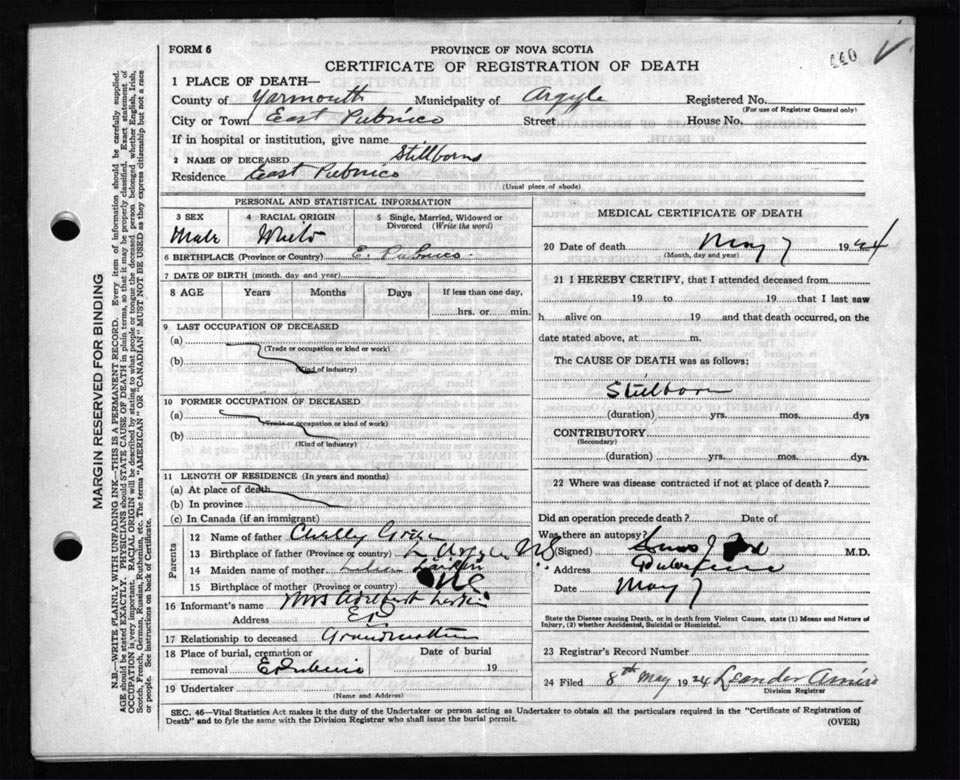 FORM 6
PROVINCE OF NOVA SCOTIA
CERTIFICATE OF REGISTRATION OF DEATH
1 PLACE OF DEATH—
County of Yarmouth Municipality of Argyle Registered No.
(For use of Registrar General only)
City or Town East Pubnico Street House No.
If in hospital or institution, give name
2 NAME OF DECEASED Stillborn
Residence East Pubnico
(Usual place of abode)
PERSONAL AND STATISTICAL INFORMATION
3 SEX 4 RACIAL ORIGIN 5 Single, Married, Widowed or Divorced (Write the word)
Male White
6 BIRTHPLACE (Province or Country) E. Pubnico
7 DATE OF BIRTH (month, day and year)
8 AGE Years Months Days If less than one day,
hrs. or min.
9 LAST OCCUPATION OF DECEASED
(a)
(Trade or occupation or kind or work)
(b)
(Kind of industry)
10 FORMER OCCUPATION OF DECEASED
(a)
(Trade or occupation or kind of work)
(b)
(Kind of industry)
11 LENGTH OF RESIDENCE (In years and months)
(a) At place of death
(b) In province
(c) In Canada (if an immigrant)
Parents
12 Name of father
13 Birthplace of father (Province or country) N.S.
14 Maiden name of mother Larkin
15 Birthplace of mother (Province or country)
16 Informant's name Mrs
Address
17 Relationship to deceased Grandmother
18 Place of burial, cremation or Date of burial
removal E Pubnico 19
19 Undertaker
(Name and Address)
MEDICAL CERTIFICATE OF DEATH
20 Date of death May 7 1924
(Month, day and year)
21 I HEREBY CERTIFY, that I attended deceased from
19 to 19 that I last saw
h alive on 19 and that death occurred, on the
date stated above, at m.
The CAUSE OF DEATH was as follows:
Stillborn
(duration) yrs. mos. dys
CONTRIBUTORY
(Secondary)
(duration) yrs. mos. dys.
22 Where was disease contracted if not at place of death?
Did an operation precede death? Date of
Was there an autopsy?
(Signed) M.D.
Address
Date May 7
State the Disease causing Death, or in death from Violent Causes, state (1) Means and Nature of Injury, (2) whether Accidental, Suicidal or Homicidal.
23 Registrar's Record Number
24 Filed 8th May 1924 Leander Amiro
Division Registrar
SEC. 46—Vital Statistics Act makes it the duty of the Undertaker or person acting as Undertaker to obtain all the particulars required in the "Certificate of Registration of
Death" and to fyle the same with the Division Registrar who shall issue the burial permit. (OVER)
MARGIN RESERVED FOR BINDING
N.B.—WRITE PLAINLY WITH UNFADING INK—THIS IS A PERMANENT RECORD. Every item of information should be carefully supplied.
AGE should be stated EXACTLY. PHYSICIANS should STATE CAUSE OF DEATH in plain terms, so that it may be properly classified. Exact statement of
OCCUPATION is very important. RACIAL ORIGIN will be described by stating to what people or tongue the deceased person belonged whether English, Irish,
Scotch, French, German, Russian, Ruthenian, etc. The terms "AMERICAN" OR "CANADIAN" MUST NOT BE USED as they express citizenship but not a race
or people. See instructions on back of Certificate.